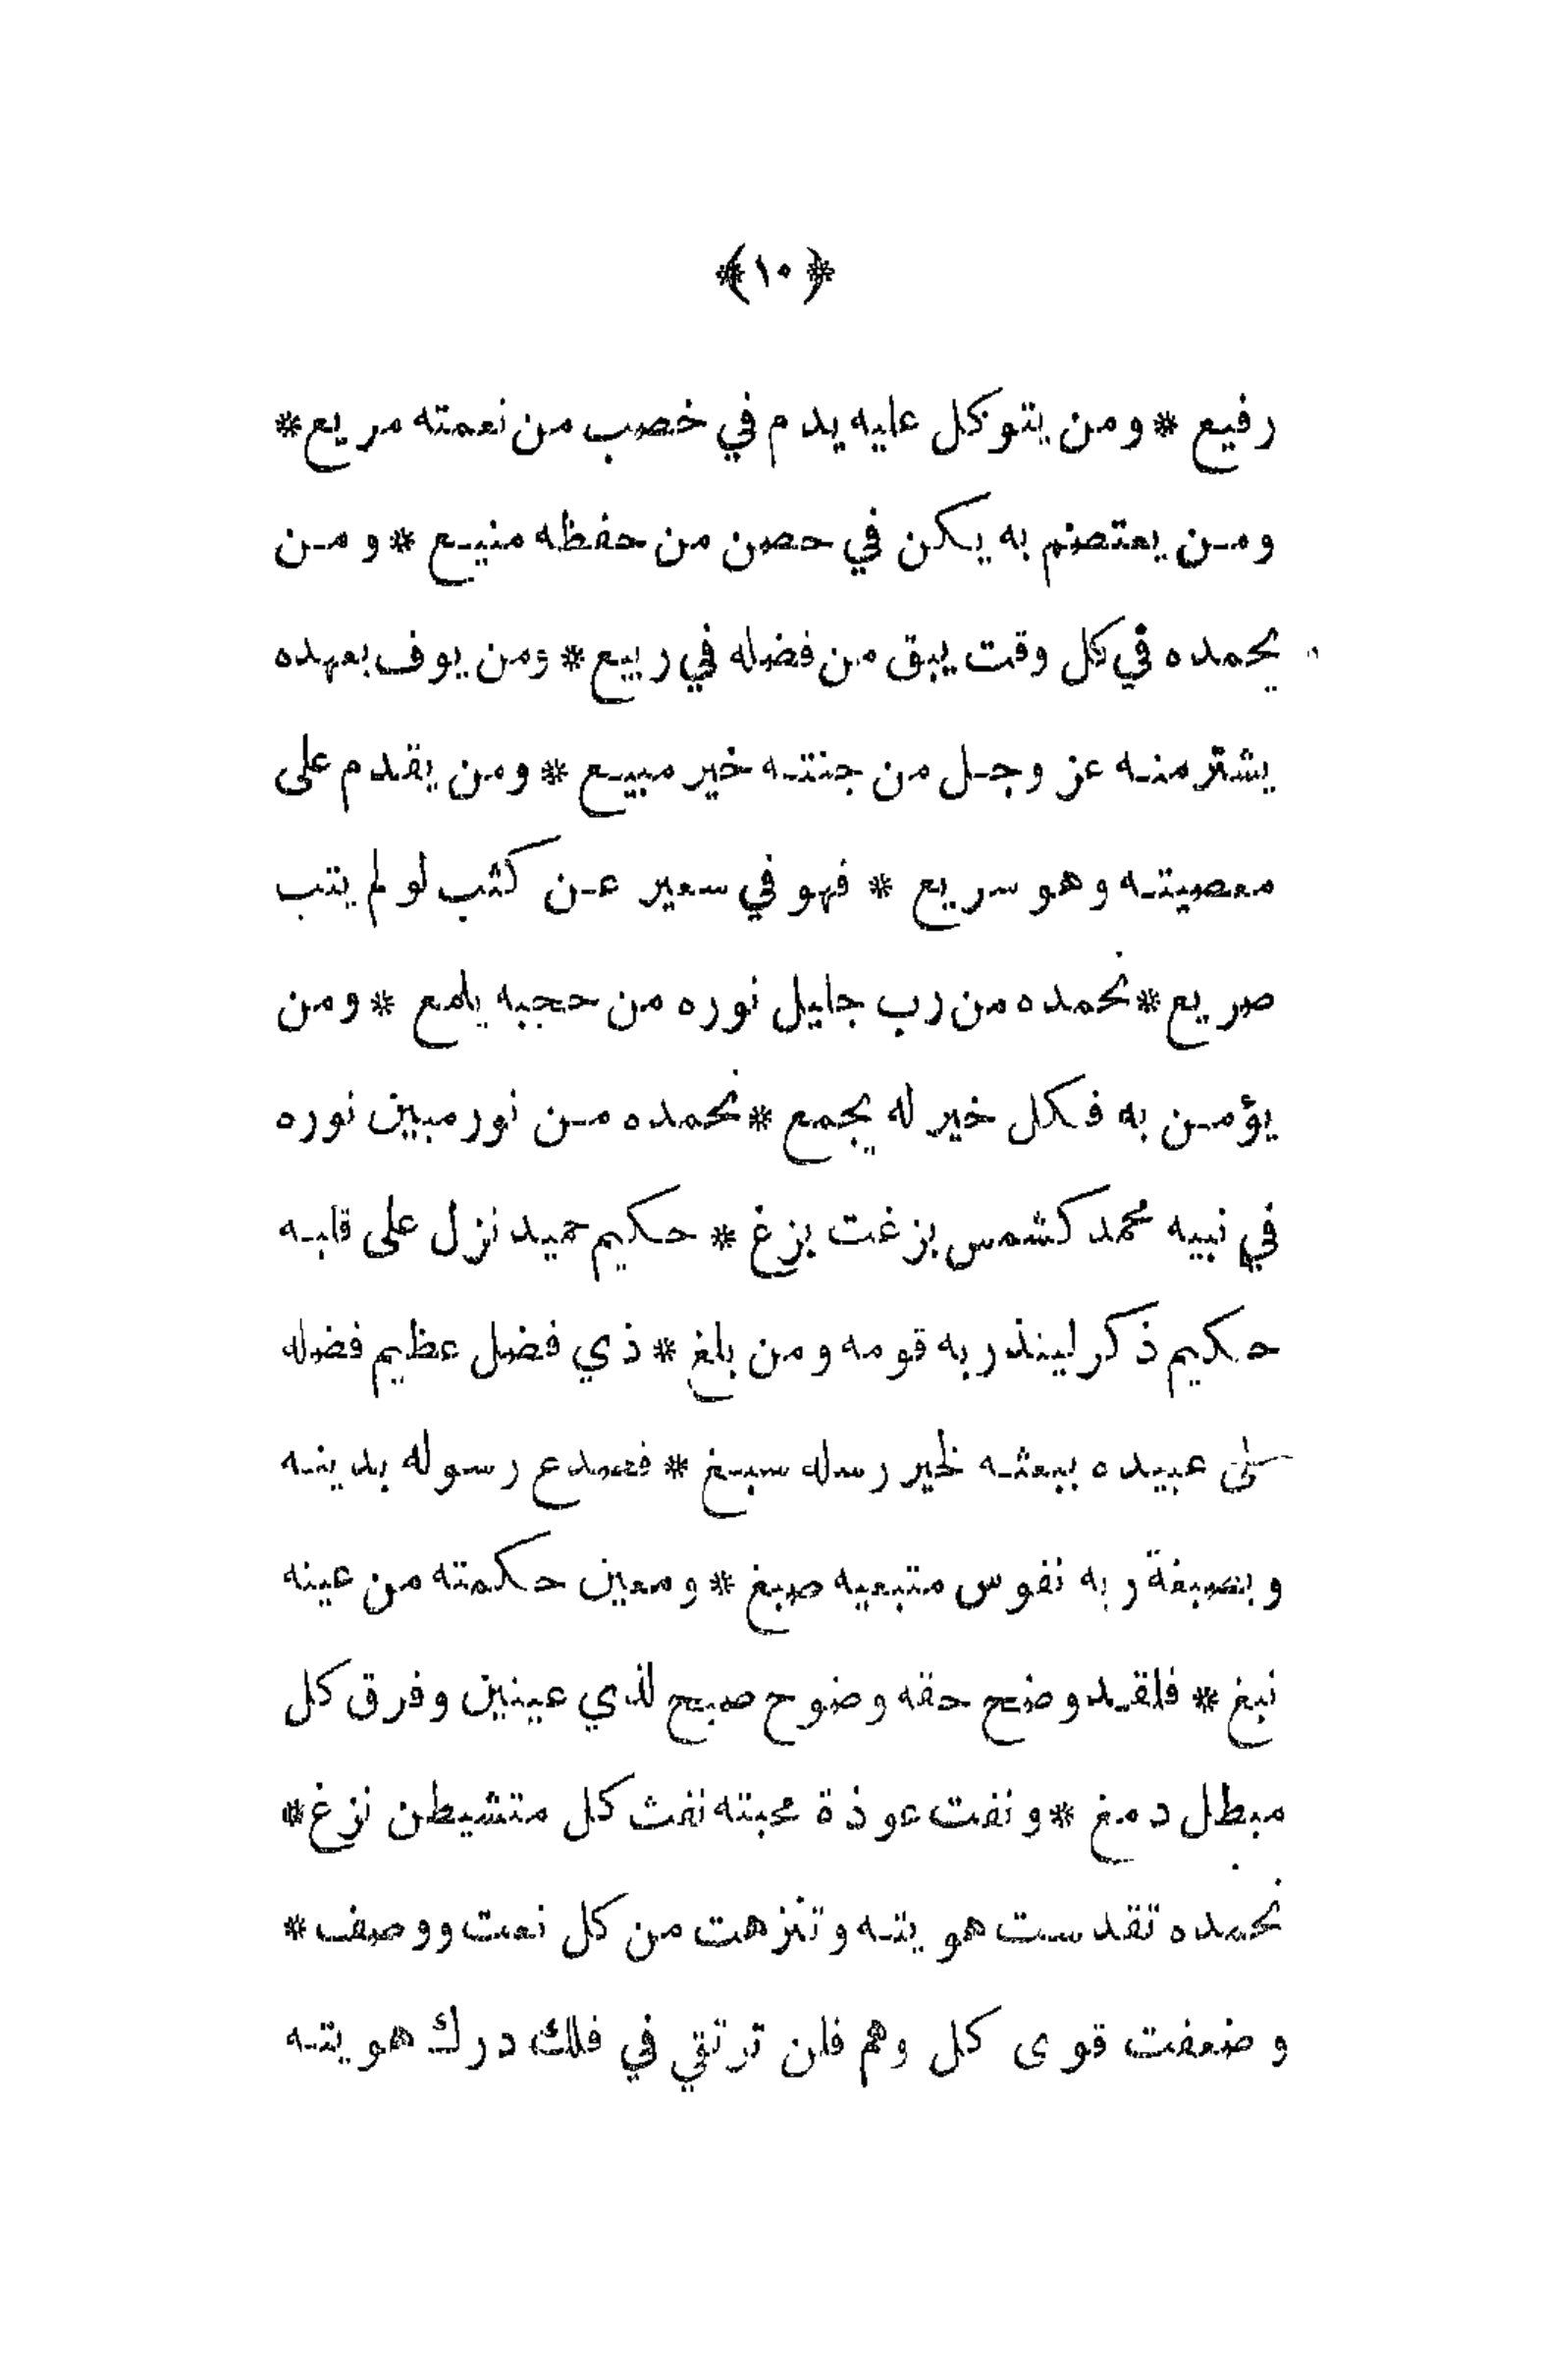 ﴿ ١٠ ﴾
رفيع * ومن يتوكل عليه يدم في خصب من نعمته مريع *
ومن يعتصم به يكن في حصن من حفظه منيع * ومن
يحمده في كل وقت يبق من فضله في ربيع * ومن يوف بعهده
يشتر منه عز وجل من جنته خير مبيع * ومن يقدم على
معصيته وهو سريع * فهو في سعير عن كثب لو لم يتب
صريع * نحمده من رب جليل نوره من حجبه يلمع * ومن
يؤمن به فكل خير له يجمع * نحمده من نور مبين نوره
في نبيه محمد كشمس بزغت بزغ * حكيم حميد نزل على قلبه
حكيم ذكر لينذر به قومه ومن بلغ * ذي فضل عظيم فضله
على عبيده ببعثه لخير رسله سبغ * فصدع رسوله بدينه
وبصبغة ربه نفوس متبعيه صبغ * ومعين حكمته من عينه
نبغ * فلقد وضح حقه وضوح صبح لذي عينين وفرق كل
مبطل دمغ * ونفت عوذة محبته نفث كل متشيطن نزغ *
نحمده تقدست هويته وتنزهت من كل نعت ووصف *
وضعفت قوى كل وهم فلن ترتقي في فلك درك هويته